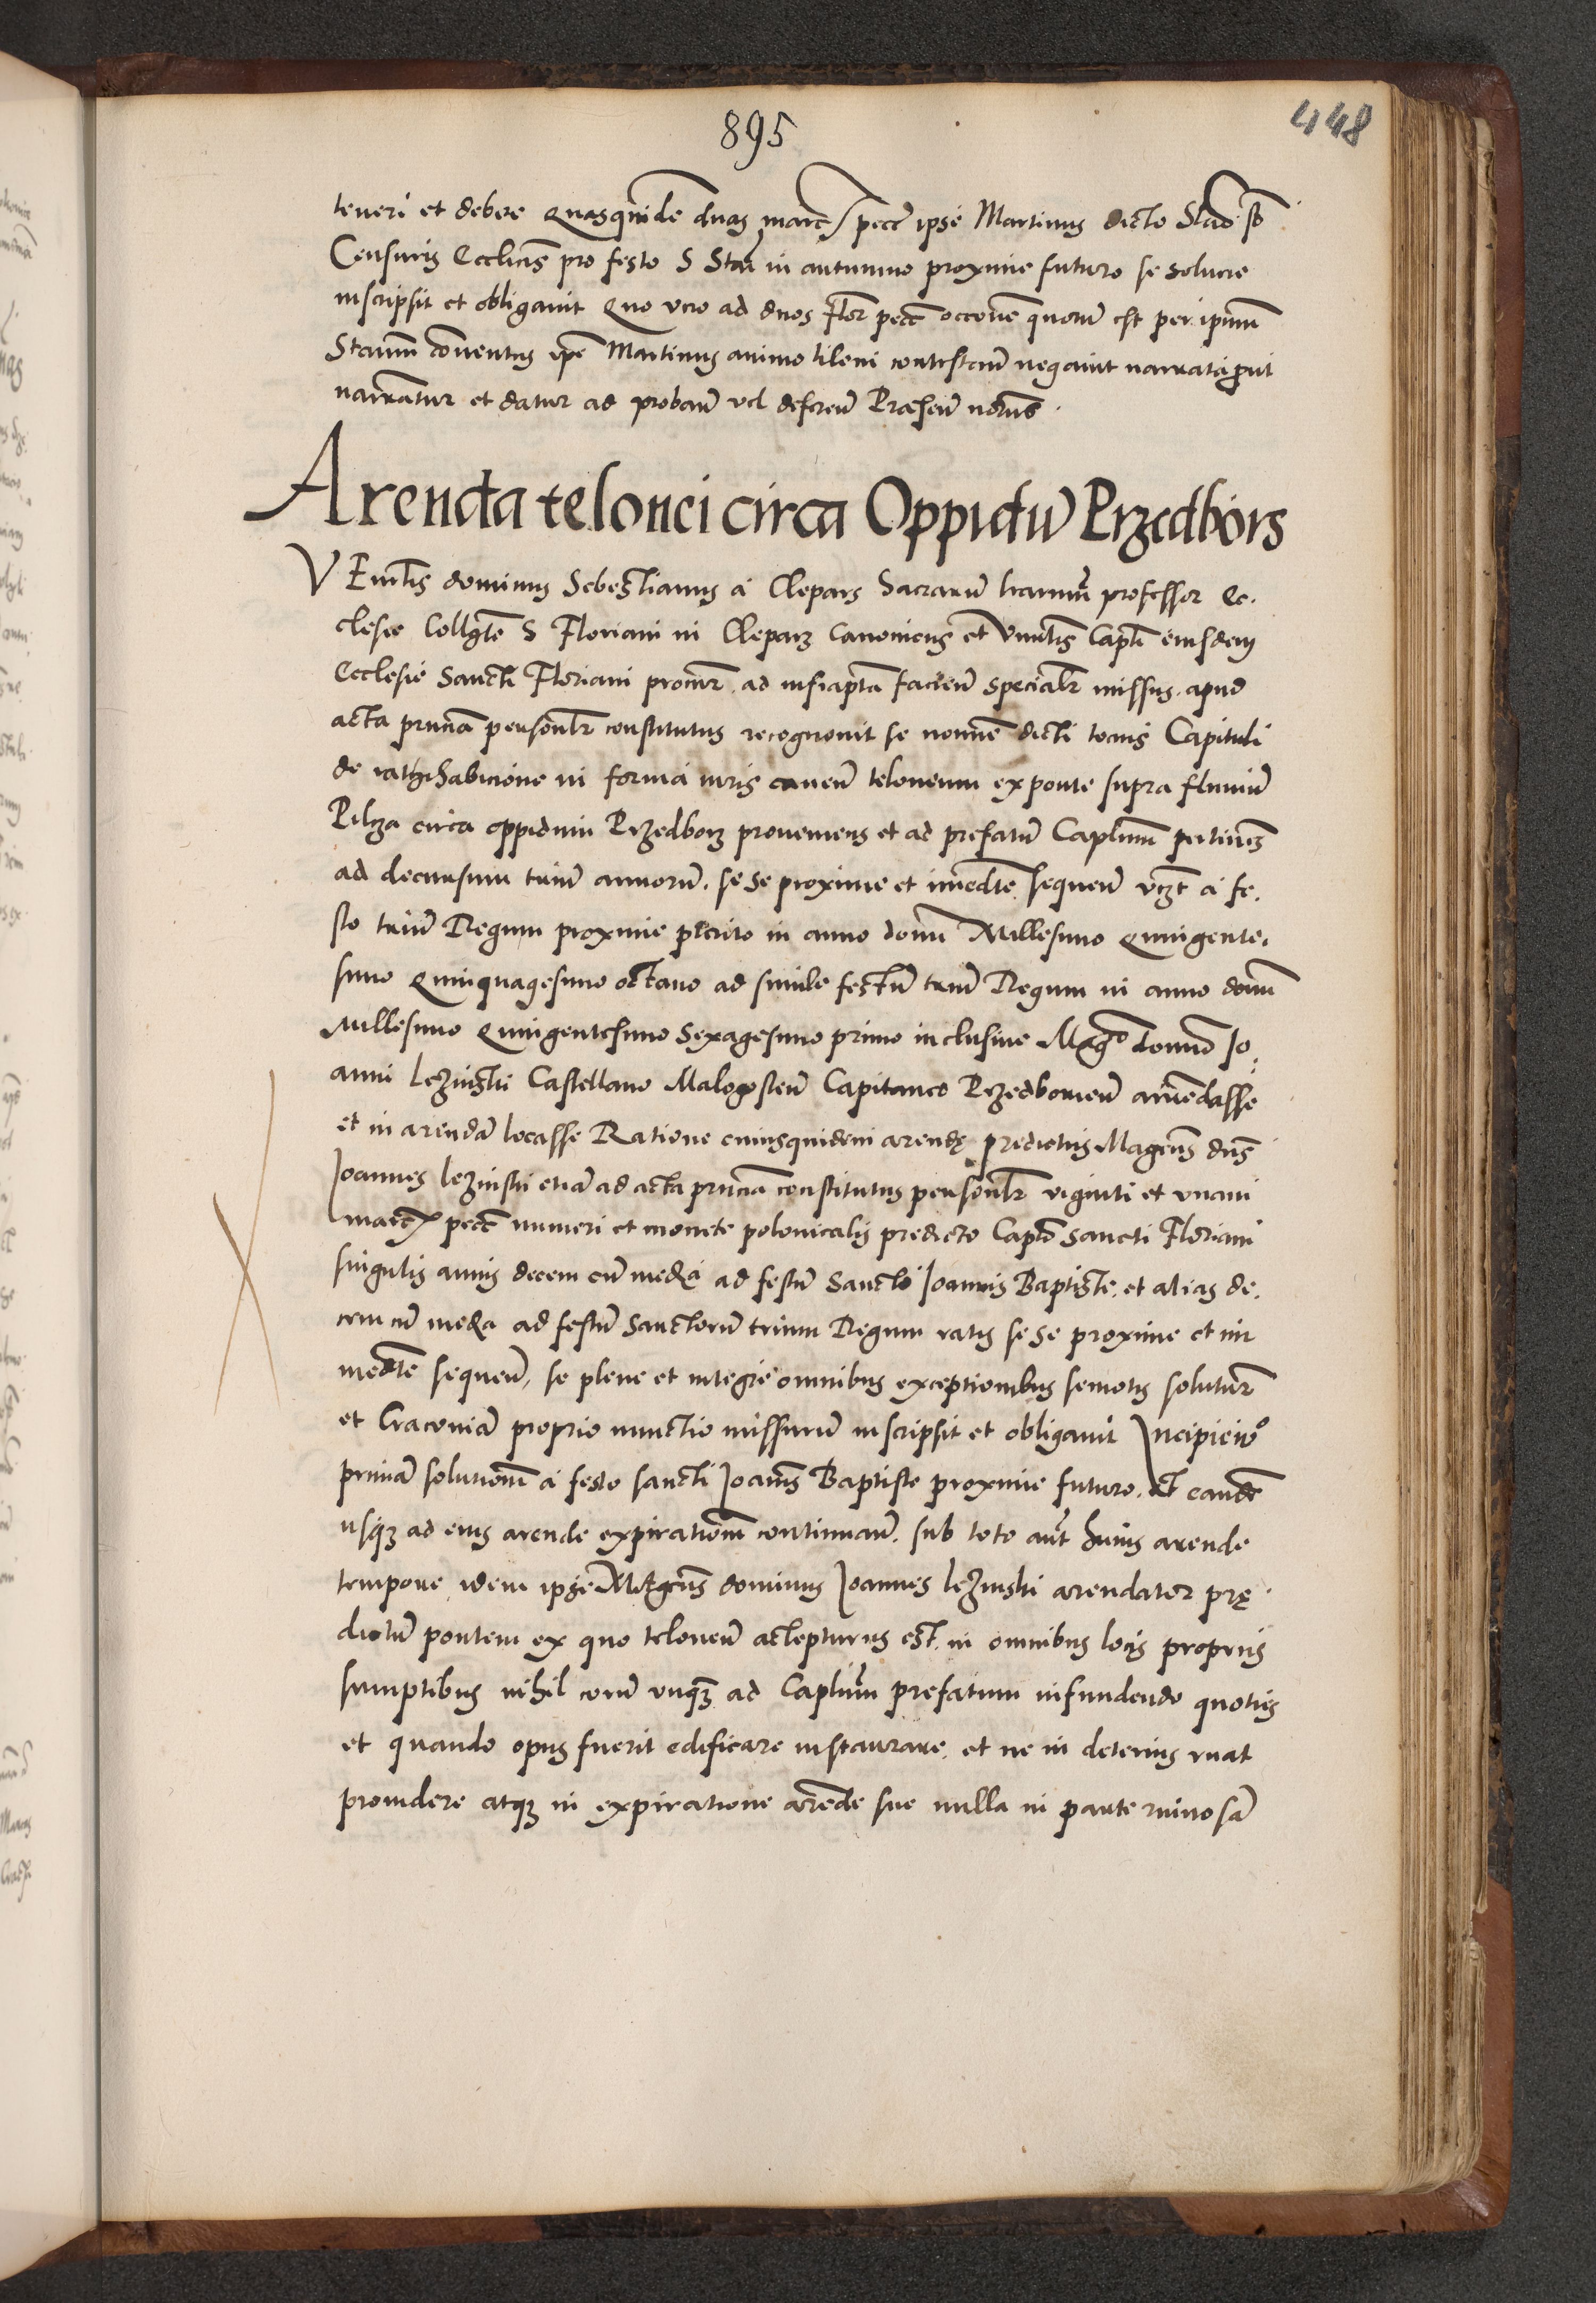 895
448
teneri et debere Quasquidē duas marc pecc ipse Martinus dicto Stao sb
Censuris Ecclicis pro festo S Stai in autumno proxime futuro se soluere
inscripsit et obligauit Quo vero ad duos flor pecc occōne quorū est per ipsum
Staum conuentus ipe Martinus animo litem contestanū negauit narrata prout
narrantur et datur ad probanū vel deferenū Præsenū notariis
Arenda telonei circa Oppidū Przedbors
VEnilis dominus Sebestianus a Clepars Sacrarū lrarum professor Ec.
clesie Collgte S Floriani in Cleparz Canonicus et Vnilis Capli eiusdem
Ecclesie Sancti Floriani procur. ad infrapta facienū specialr missus. apud
acta pruncia personlr constitutus recognouit se nomine dicti tocius Capituli
de rathihabicione in forma iuris cauenū teloneum ex ponte supra fluuiū
Pilcza circa oppidum Przedborz proueniens et ad prefatū Caplum pertinens
ad decursum triū annorū. se se proxime et imedte sequenū vczt a fe.
sto triū Regum proxime preterito in anno domi Millesimo Quingente.
simo Quinquagesimo octauo ad simile festū triū Regum in anno domi
Millesimo Quingentesimo Sexagesimo primo inclusiue Mgco domino Jo.
anni Lezinski Castellano Malogostenū Capitaneo Przedborienū arrendasse
et in arendā locasse Ratione cuiusquidem arendę predictus Magcus dns
Joannes Lezinski etiā ad acta pruncia constitutus personlr viginti et vnam
marc pecc numeri et monete polonicalis predicto Caplo Sancti Floriani
singulis annis decem cū media ad festū Sancti Joannis Baptiste. et alias de.
cem cū media ad festū Sanctorū trium Regum ratis se se proxime et im
medte sequenū, se plene et integre omnibus exceptionibus semotis soluturū
et Cracouiā proprio nunctio missurū inscripsit et obligauit Incipienō
primā solutionem a festo sancti Joannis Baptiste proxime futuro. Et eandē
usqȝ ad eius arende expirationem continuanō. sub toto aut huius arende
tempore idem ipse Magcus dominus Joannes Lezinski arendator prę
dictū pontem ex quo teloneū accepturus est. in omnibus locis propriis
sumptibus nihil eorū vnqȝ ad Caplum prefatum infundendo quoties
et quando opus fuerit edificare instaurare. et ne in deterius ruat
prouidere atqȝ in expiratione arēde sue nulla in parte ruinosā